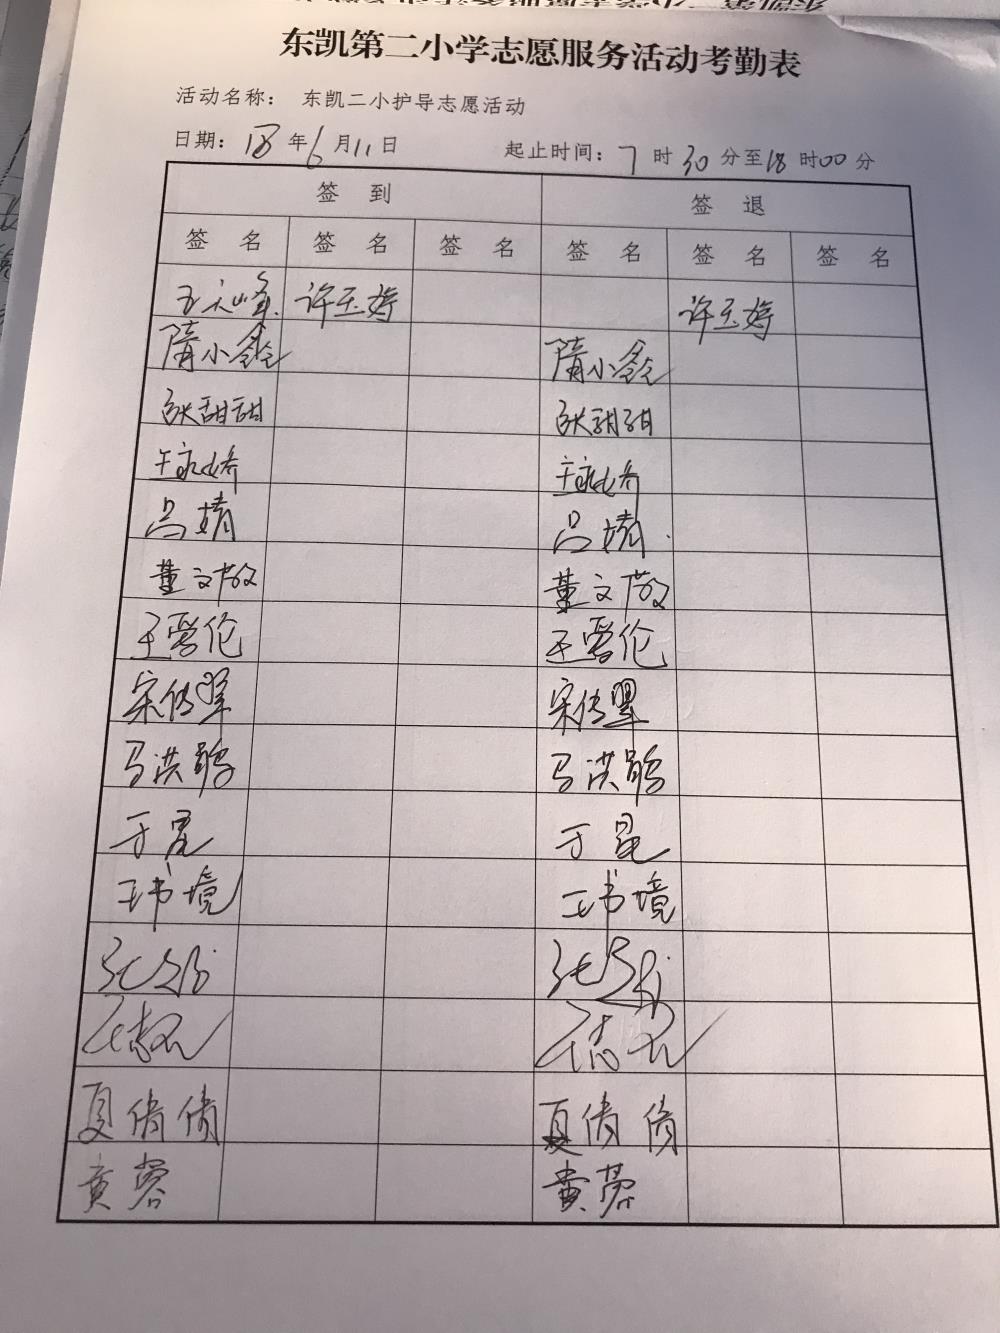 东凯第二小学志愿服务活动考勤表
活动名称： 东凯二小护导志愿活动
日期：18年6月11日 起止时间：7时30分至18时00分
签 到 签 退
签 名 签 名 签 名 签 名 签 名 签 名
许玉婷 许玉婷
隋小鑫 隋小鑫
张甜甜 张甜甜
王咏娇 王咏娇
吕婧 吕婧
董文敬 董文敬
王晋伦 王晋伦
宋传翠 宋传翠
马洪鹃 马洪鹃
于昆 于昆
王书境 王书境
夏倩倩 夏倩倩
黄蓉 黄蓉